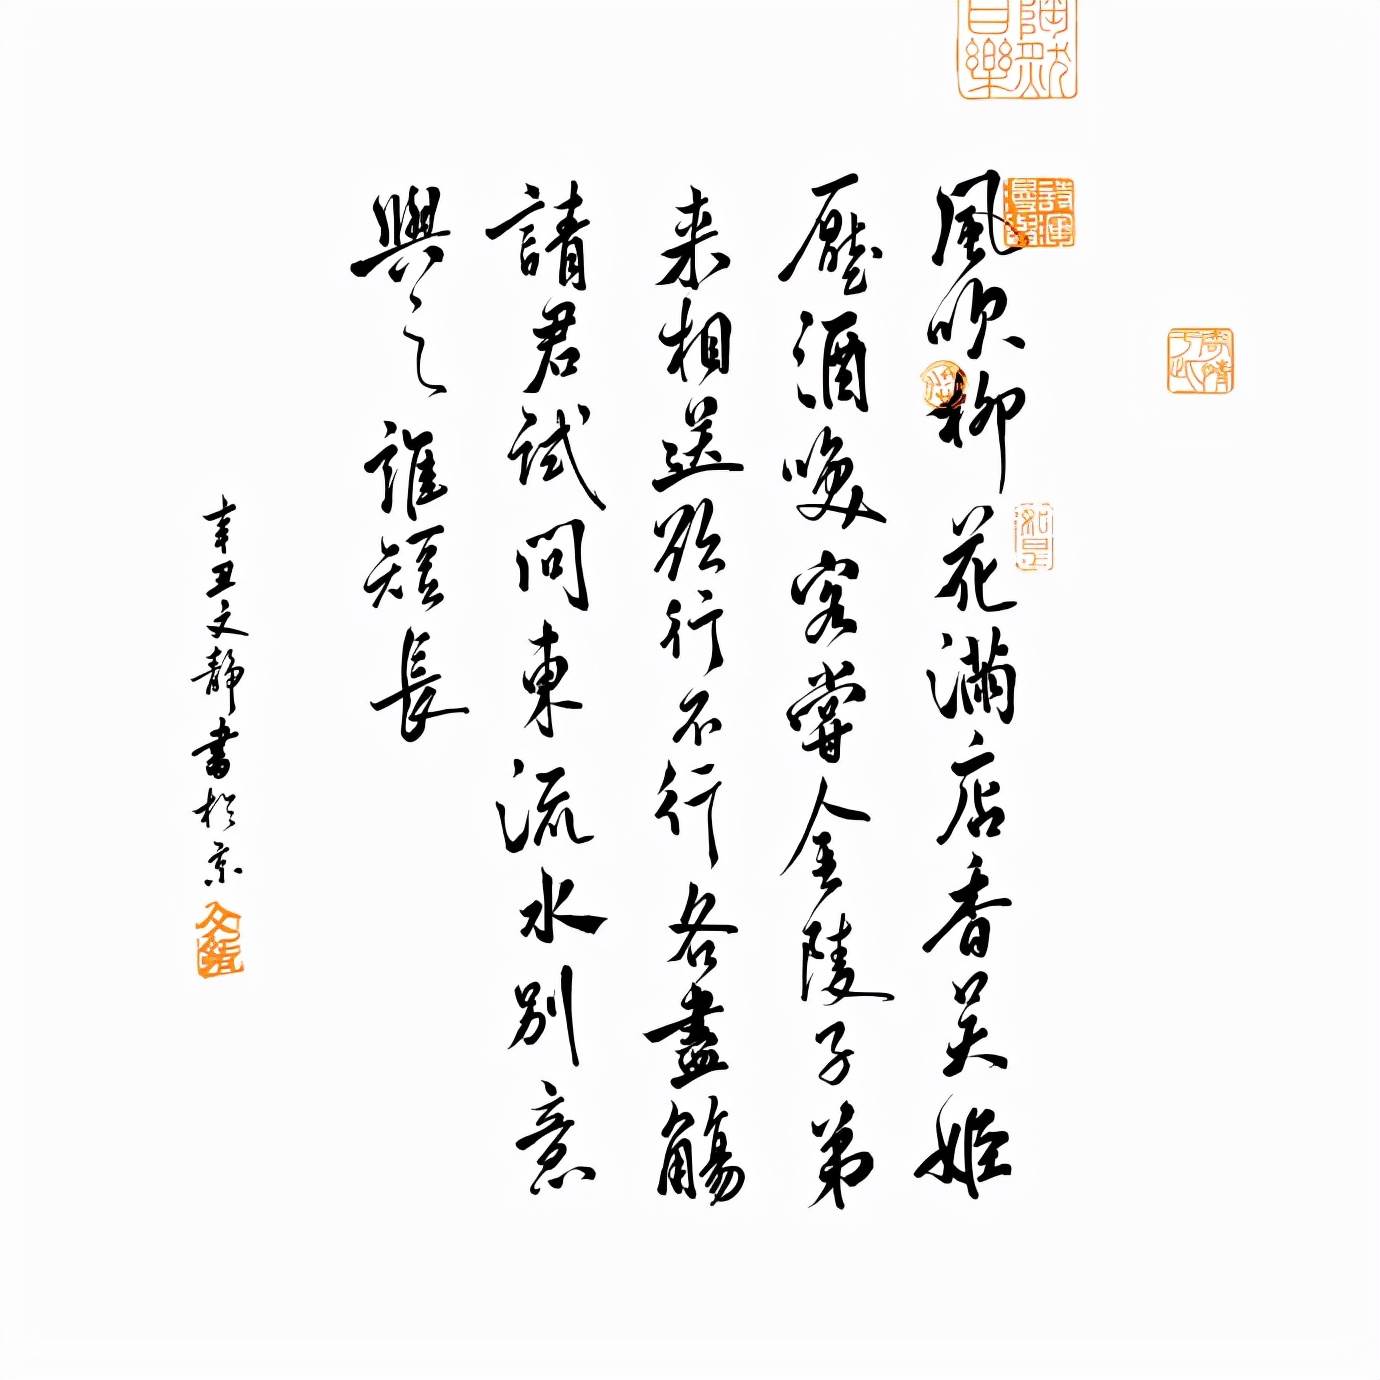 風吹柳花滿店香吴姬
壓酒喚客嘗金陵子弟
来相送欲行不行各盡觴
請君試問東流水別意
與之誰短長
辛丑文靜書於京
文靜